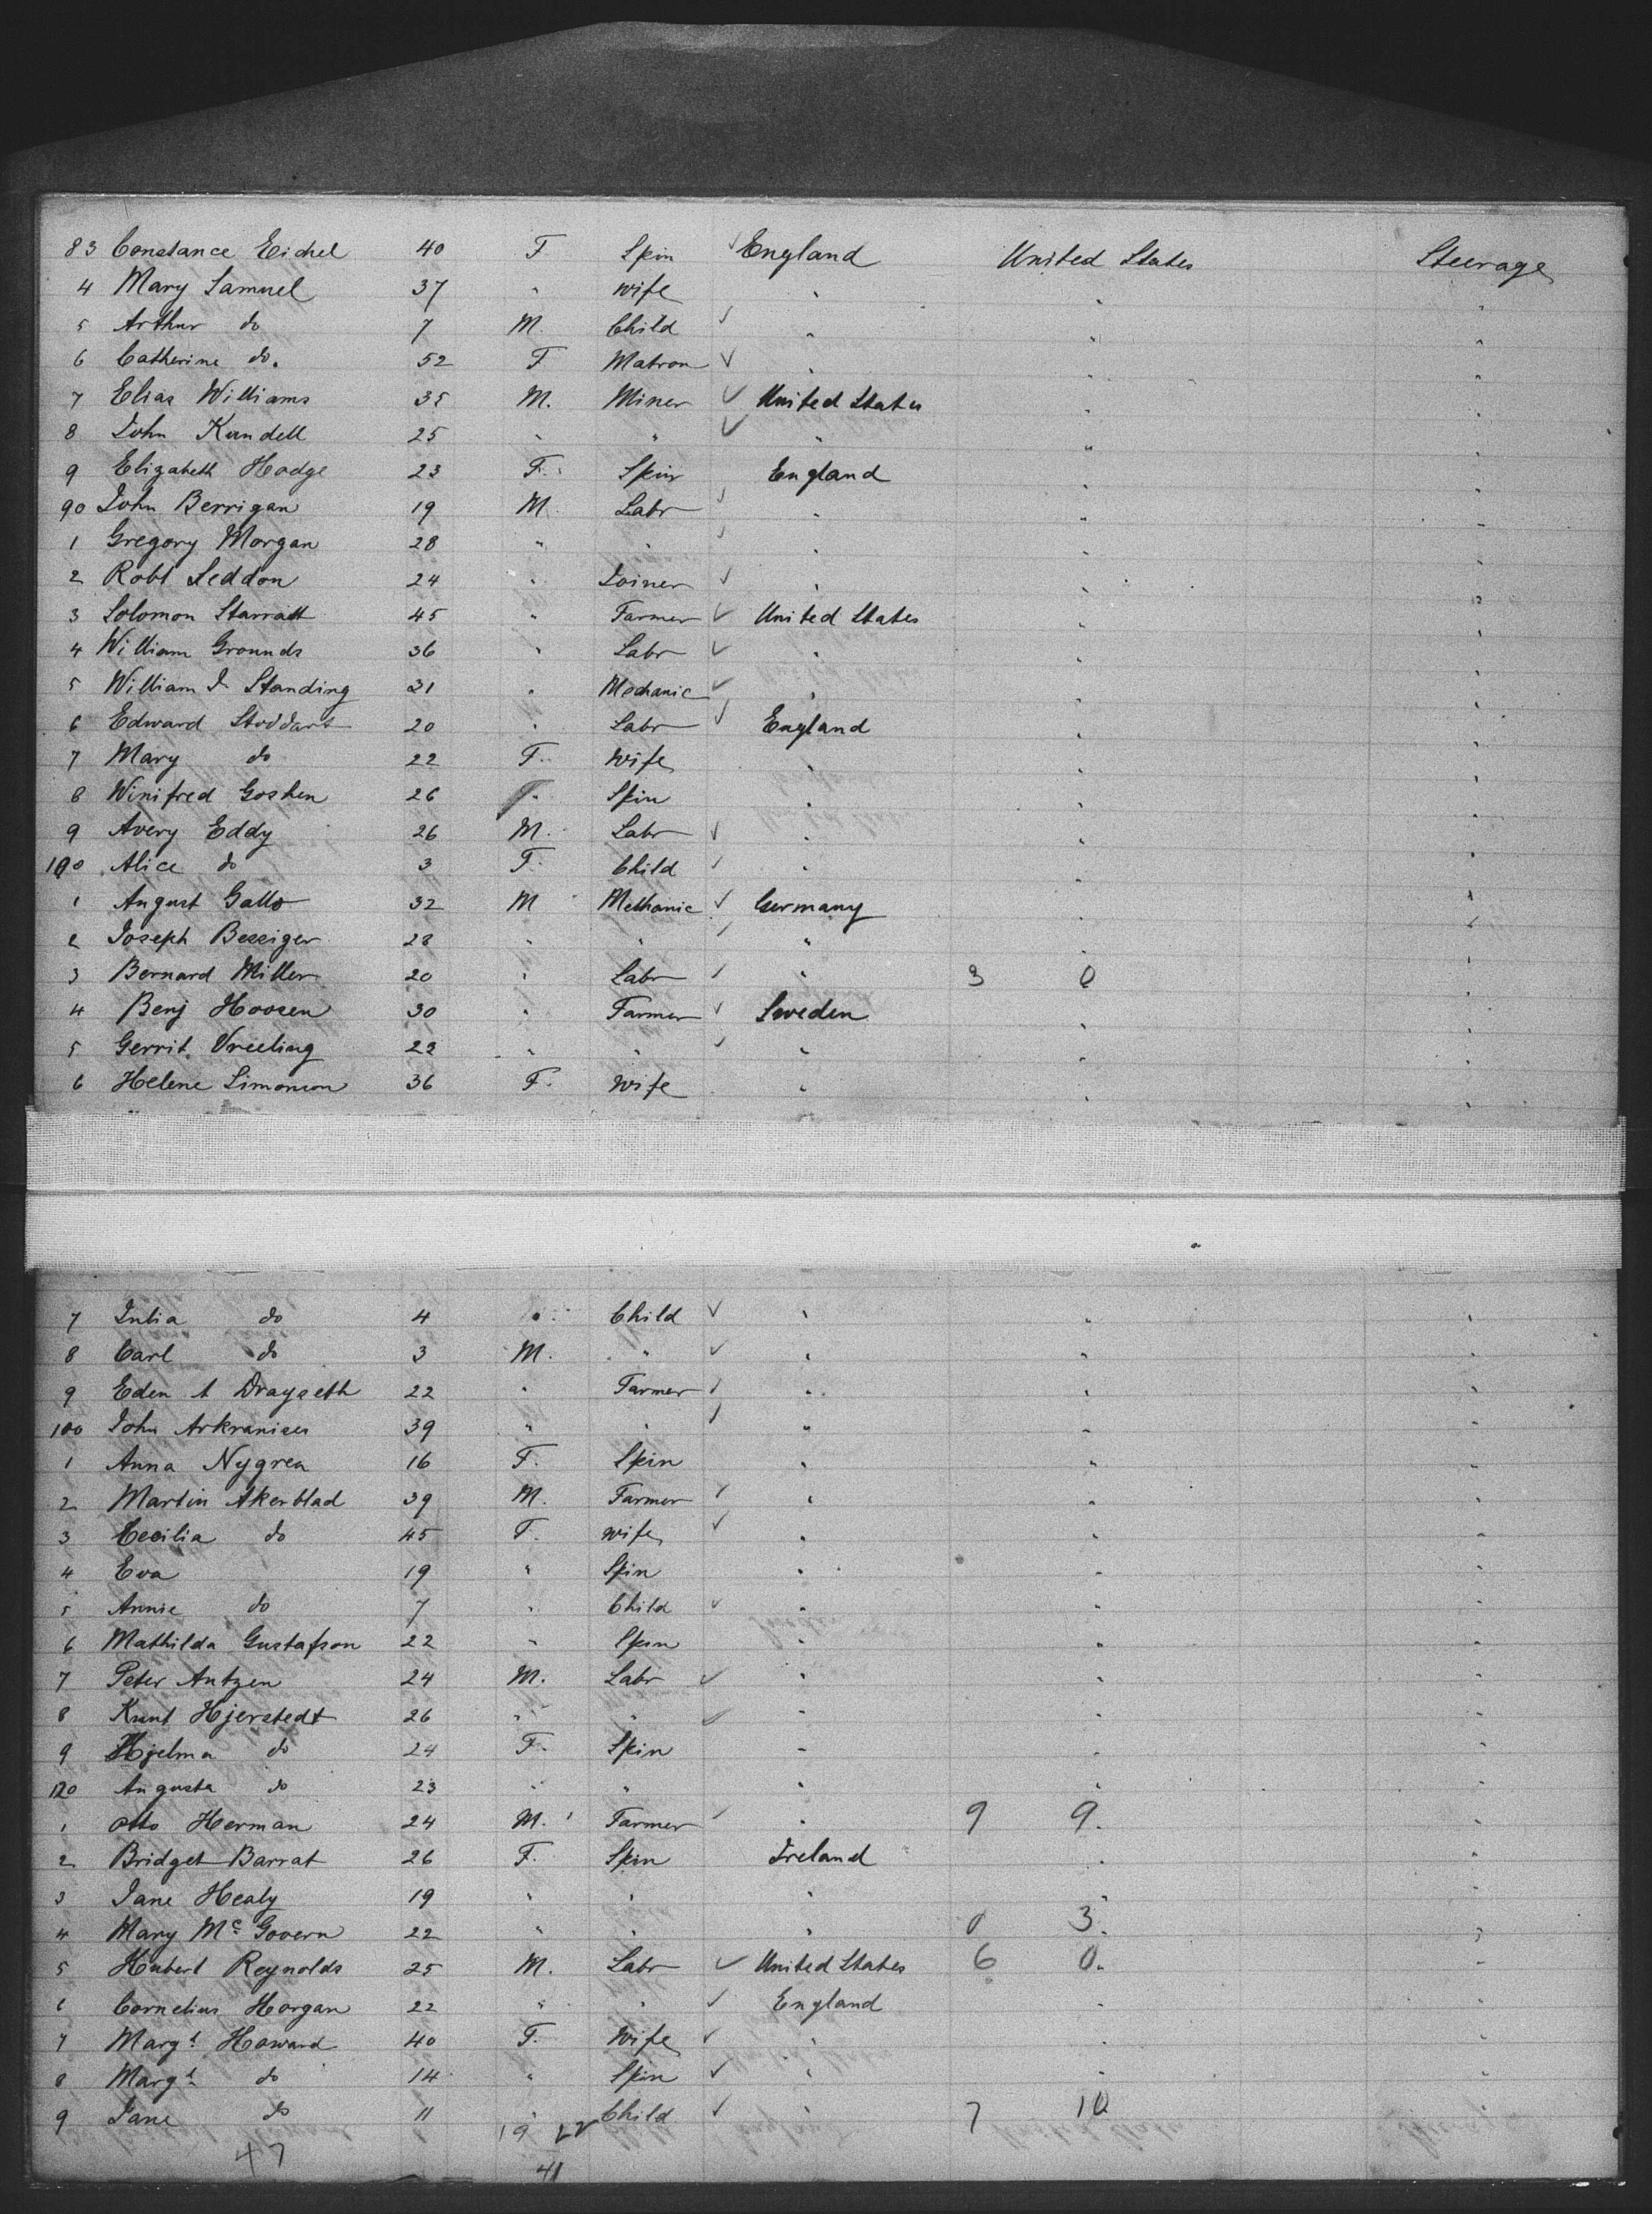 83 Constance Eichel 40 F. Spin ✓ England United States Steerage
4 Mary Samuel 37 " wife " " "
5 Arthur do 7 M. Child ✓ " " "
6 Catherine do. 52 F Matron ✓ " " "
7 Elias Williams 35 M. Miner ✓ United States " "
8 John Kundell 25 " " ✓ " " "
9 Elizabeth Hodge 23 F. Spin England " "
90 John Berrigan 19 M. Labr ✓ " " "
1 Gregory Morgan 28 " " ✓ " " "
2 Robt Seddon 24 " Joiner ✓ " " "
3 Solomon Starratt 45 " Farmer ✓ United States " "
4 William Grounds 36 " Labr ✓ " " "
5 William J Standing 31 " Mechanic ✓ " " "
6 Edward Stoddart 20 " Labr ✓ England " "
7 Mary do 22 F. Wife " " "
8 Winifred Goshen 26 " Spin " " "
9 Avery Eddy 26 M. Labr ✓ " " "
100 Alice do 3 F. Child ✓ " " "
1 August Gallo 32 M Methanic ✓ Germany " "
2 Joseph Bessiger 28 " " ✓ " " "
3 Bernard Miller 20 " Labr ✓ " 3 0 "
4 Benj Hoosen 30 " Farmer ✓ Sweden " "
5 Gerrit Vreeling 22 " " ✓ " " "
6 Helene Simonson 36 F. Wife " " "
7 Julia do 4 " Child ✓ " " "
8 Carl do 3 M. " ✓ " " "
9 Eden A Drayseth 22 " Farmer ✓ " " "
100 John Arkranises 39 " " ✓ " " "
1 Anna Nygren 16 F. Spin " " "
2 Martin Akerblad 39 M. Farmer ✓ " " "
3 Cecilia do 45 F. wife ✓ " " "
4 Eva 19 " Spin " " "
5 Annie do 7 " Child ✓ " " "
6 Mathilda Gustafson 22 " Spin " " "
7 Peter Antzen 24 M. Labr ✓ " " "
8 Knut Hjerstedt 26 " " ✓ " " "
9 Hjelma do 24 F. Spin " " "
120 Augusta do 23 " " " " "
1 Otto Herman 24 M. Farmer ✓ " 9 9. "
2 Bridget Barrat 26 F. Spin Ireland " "
3 Jane Healy 19 " " " " "
4 Mary Mc Govern 22 " " " 0 3. "
5 Hubert Reynolds 25 M. Labr ✓ United States 6 0. "
6 Cornelius Horgan 22 " " ✓ England " "
7 Margt Howard 40 F. Wife ✓ " " "
8 Margt do 14 " Spin ✓ " " "
9 Jane do 11 " Child ✓ " 7 10 "
47 19 22
41